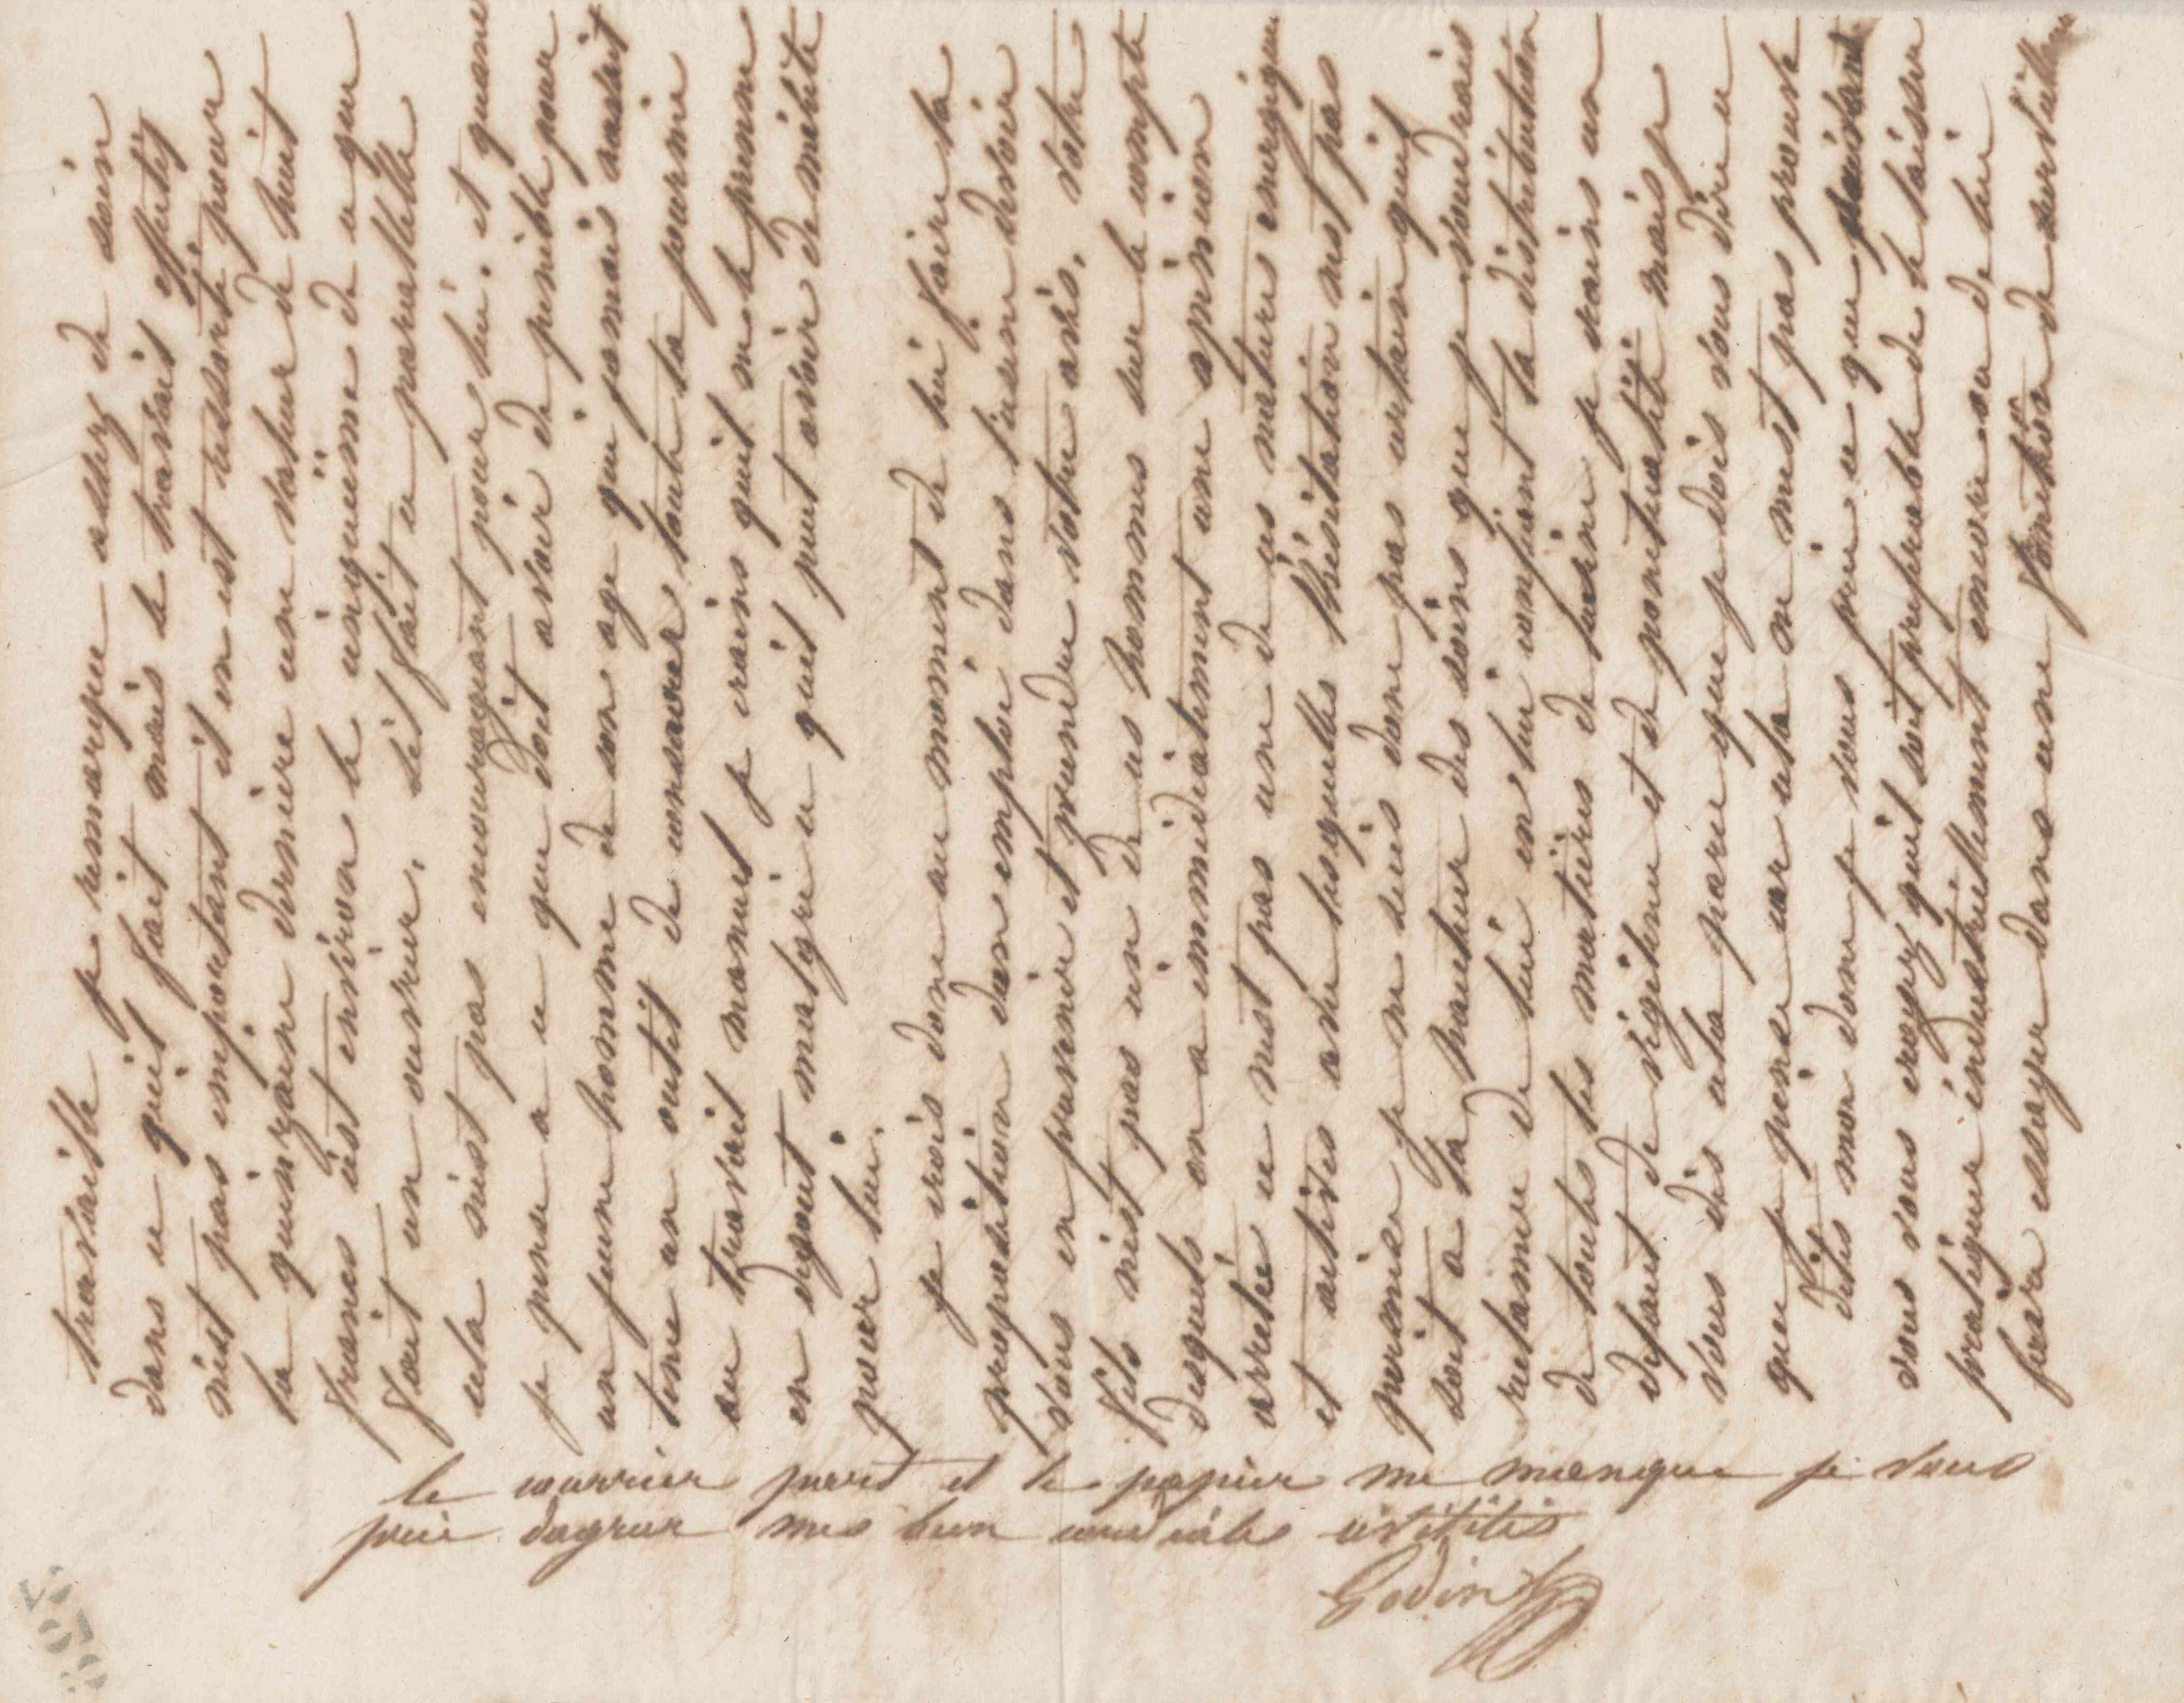 travaille je remarque assez de soin
dans ce quil fait mais le travail effectif
nest pas important il en est ressorti pour
la quinzaine derniere une valeur de huit
francs cest environ le cinquieme de ce que
fait un ouvrier, sil fait ce parallelle
cela nest pas encourageant pour lui. et quand
je pense a ce que doit avoir de penible pour
un jeune homme de son age qui jamais navait
tenu un outil de consacrer toute la journée
au travail manuel je crains quil ne le prenne
en degout malgré ce quil peut avoir de mérite
pour lui.
je crois donc au moment de lui faire la
proposition dun emploi dans lusine devoir
vous en prevenir et prendre votre avis. votre
fils nest pas un de ces hommes sur le compte
desquels on a immediatement une opinion
arretée ce nest pas une de ces natures energiques
et actives avec lesquelles l'hésitation nest pas
permise je ne suis donc pas certain quil
soit a la hauteur des soins que je voudrais
reclamer de lui en lui confiant la distribution
de toutes les matières de lusine je crains un
defaut de vigilence et de ponctualité mais je
vous dis cela parce que je dois vous dire ce
que je pense car cela ne mest pas prouvé
dites moi donc je vous prie ce que
vous vous croyez quil soit preferable de le laisser
pratiquer industriellement encore ou de lui
faire essayer dans une fonction de surveillance
le courrier part et le papier me manque je vous
prie dagreer mes bien cordiales civilités
Godin